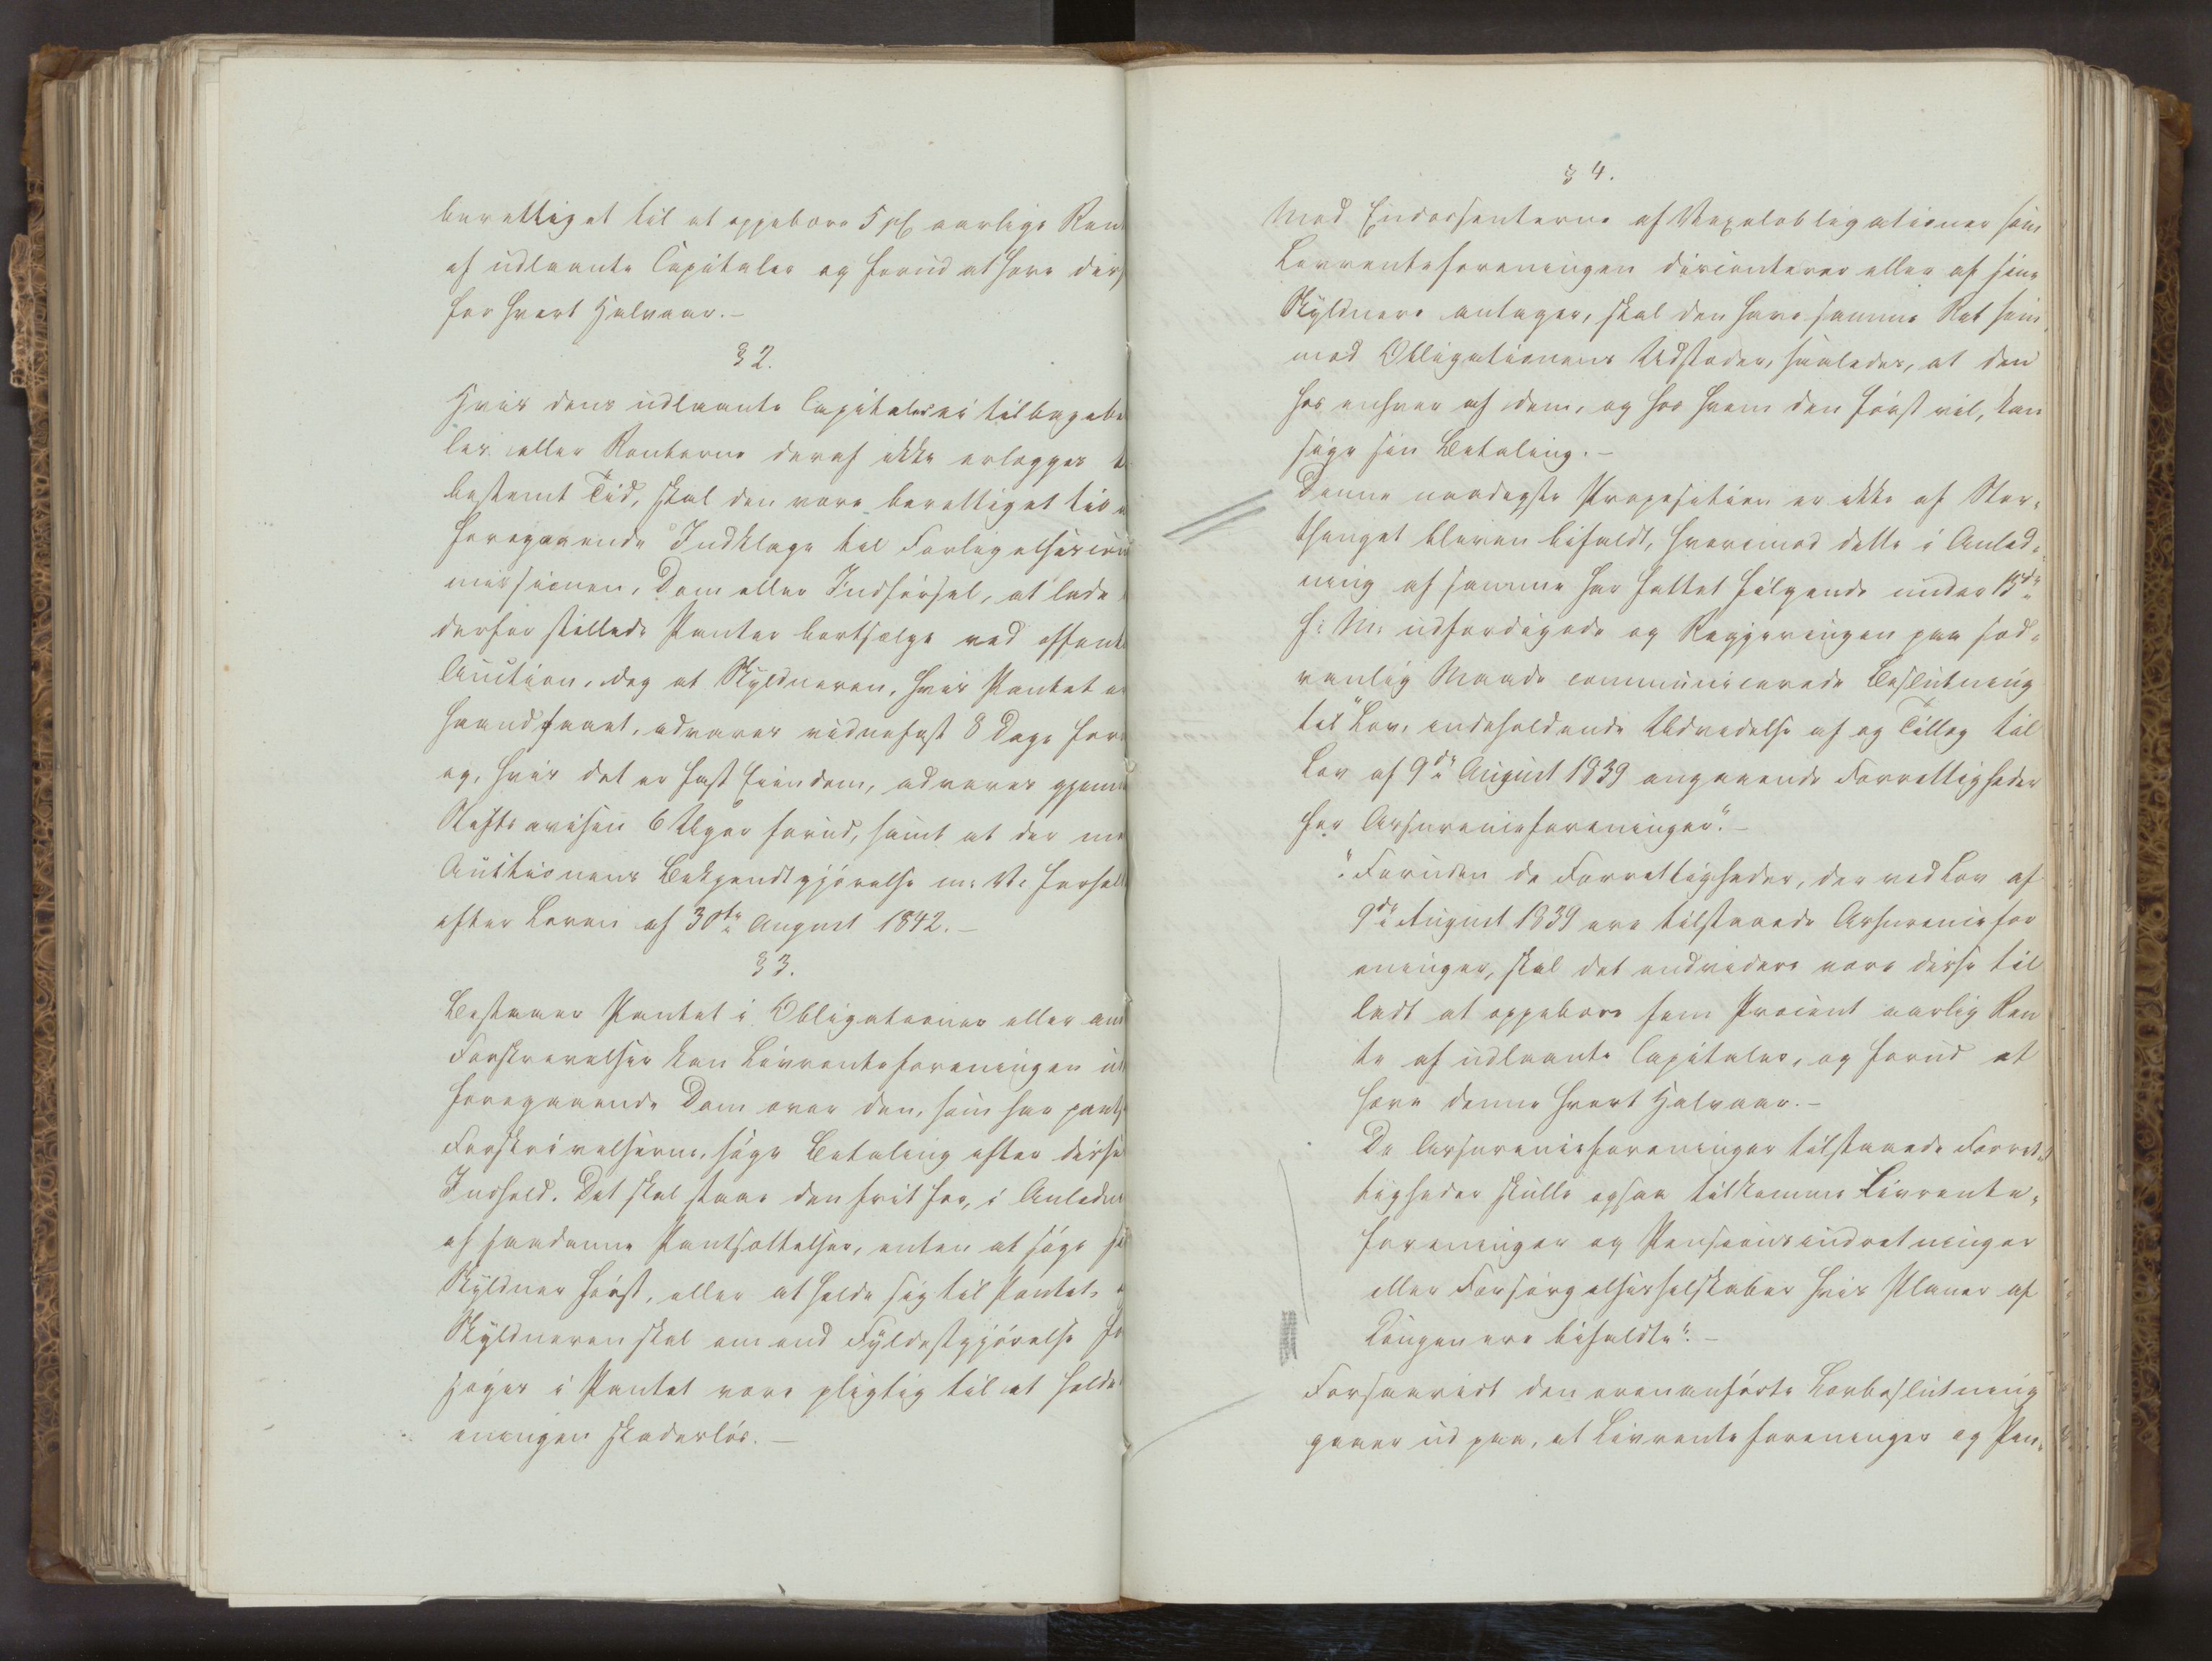 berettiget til at oppebære 5 pC aarlige Ren
af udlaante Capitaler og forud at hæve dis
for hvert Halvaar.—
§ 2.
Hvis dens udlaante Capitaler ei tilbagebe
les eller Renterne deraf ikke erlægges t
bestemt Tid, skal den være berettiget til u
foregaaende Indklage til Forligelsescom
missionen, Dom eller Indførsel, at lade
derfor stillede Panter bortsælge ved offent
Auction, dog at Skyldneren, hvis Pantet er
haandfaaet, advares vidnefast 8 Dage for
og, hvis det er fast Eiendom, advares gjenn
Stiftsavisen 6 Uger forud, samt at der me
Auctionens Bekjendtgjørelse m: V: forhol
efter Loven af 30te August 1842.—
§ 3.
Bestaaer Pantet i Obligationer eller and
Forskrivelser kan Livrenteforeningen ud
foregaaende Dom over den, som har pants
Forskrivelserne, søge Betaling efter disse
Indhold. Det skal staae den frit for, i Anledn
af saadanne Pantsættelser, enten at søge si
Skyldner først, eller at holde sig til Pantet,
Skyldneren skal om end Fyldestgjørelse fo
søges i Pantet være pligtig til at holde
eningen skadesløs.—
§ 4.
Mod Endossenterne af Vexelobligationer som
Livrenteforeningen disconterer eller af sine
Skyldnere antager, skal den have samme Ret som
mod Obligationens Udsteder, saaledes, at den
hos enhver af dem, og hos hvem den først vil, kan
søge sin Betaling.—
Denne naadigste Proposition er ikke af Stor-
thinget bleven bifaldt, hvorimod dette i Anled-
ning af samme har fattet følgende under 13de
h: M: udfærdigede og Regjeringen paa sæd-
vanlig Maade communicerede Beslutning
til "Lov, indeholdende Udvidelse af og Tillæg til
Lov af 9de August 1839 angaaende Forrettigheder
for Assuranceforeninger".—
"Foruden de Forrettigheder, der ved Lov af
9de August 1839 ere tilstaaede Assurancefor
eninger, skal det endvidere være disse til
ladt at oppebære fem Procent aarlig Ren
te af udlaante Capitaler, og forud at
hæve denne hvert Halvaar.—
De Assuranceforeninger tilstaaede Forret-
tigheder skulle ogsaa tilkomme Livrente-
foreninger og Pensionsindretninger
eller Forsørgelsesselskaber hvis Planer af
Kongen ere bifaldte".—
Forsaavidt den ovenanførte Lovbeslutning
gaaer ud paa, at Livrenteforeninger og Pen-